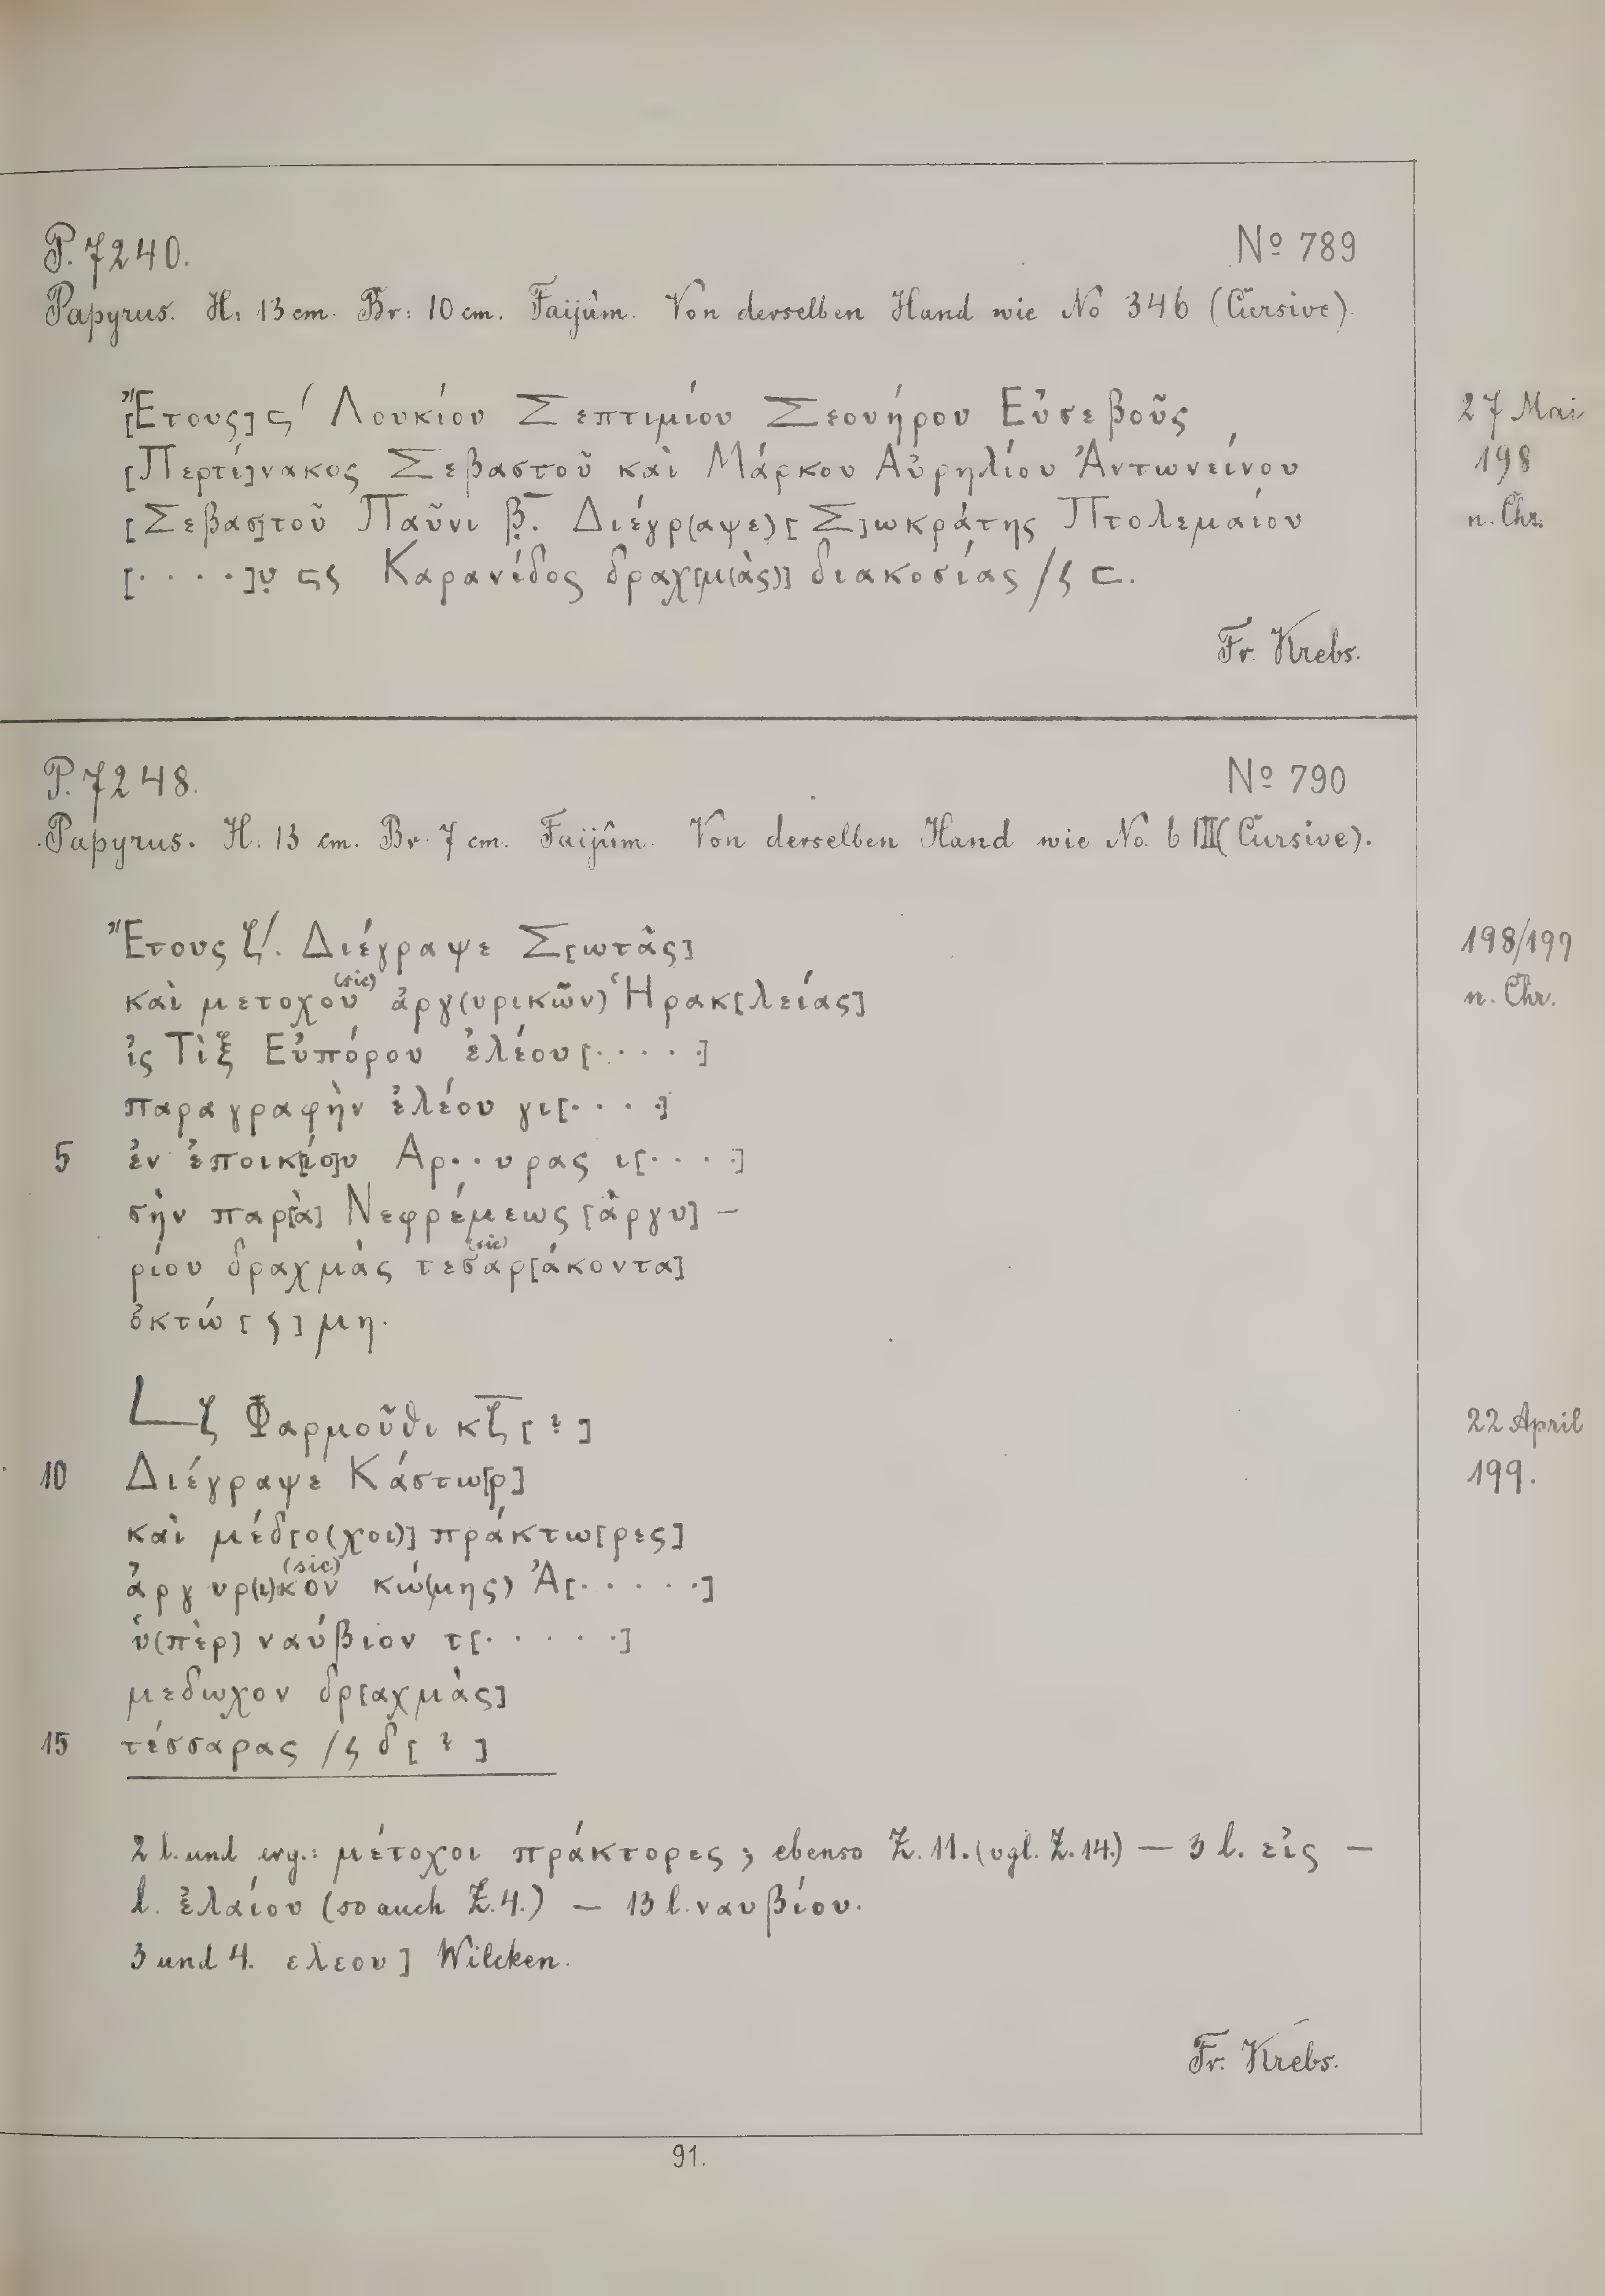 P. 7240. Nº 789
Papyrus. H. 13 cm. Br: 10 cm. Faijûm. Von derselben Hand wie No 346 (Cursive).
[Ἔτους] ϛ′ Λουκίου Σεπτιμίου Σεουήρου Εὐσεβοῦς 27 Mai
[Περτί]νακος Σεβαστοῦ καὶ Μάρκου Αὐρηλίου Ἀντωνείνου 198
[Σεβασ]τοῦ Παῦνι β̣̄. Διέγρ(αψε) [Σ]ωκράτης Πτολεμαίου n. Chr.
[. . . .]υ̣ Καρανίδος δραχ[μ(ὰς)] διακοσίας
Fr. Krebs.
P. 7248. Nº 790
Papyrus. H. 13 cm. Br. 7 cm. Faijûm. Von derselben Hand wie No. 6 III (Cursive).
Ἔτους ζ′. Διέγραψε Σ[ωτᾶς] 198/199
καὶ μετοχου (sic) ἀργ(υρικῶν) Ἡρακ[λείας] n. Chr.
ἰς Τὶξ Εὐπόρου ἐλέου [. . . . .]
παραγραφὴν ἐλέου γι[. . . .]
5 ἐν ἐποικ[ίο]υ Αρ..υρας ι[. . . .]
σὴν παρ[ὰ] Νεφρέμεως [ἀργυ] –
ρίου δραχμὰς τεσαρ[άκοντα] (sic)
ὀκτώ [ʃ] μη.
L ζ Φαρμοῦθι κζ̄ [?] 22 April
10 Διέγραψε Κάστω[ρ] 199.
καὶ μέδ[ο(χοι)] πράκτω[ρες]
ἀργυρ(ι)κον (sic) κώ(μης) Ἀ[. . . . .]
ὑ(πὲρ) ναύβιον τ[. . . . .]
μεδωχον δρ[αχμὰς]
15 τέσσαρας /ʃ δ [?]
2 l. und erg.: μέτοχοι πράκτορες; ebenso Z. 11. (vgl. Z. 14.) — 3 l. εἰς —
l. ἐλαίου (so auch Z. 4.) — 13 l. ναυβίου.
3 und 4. ελεου] Wilcken.
Fr. Krebs.
91.